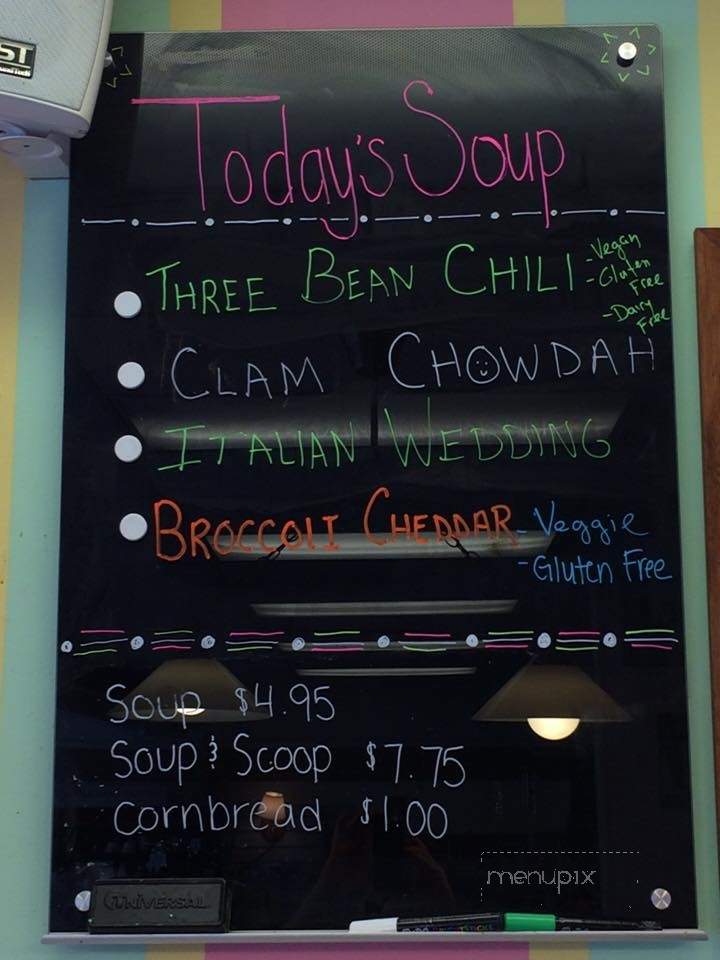 ST
Today's Soup
THREE BEAN CHILI -Vegan
-Gluten Free
-Dairy Free
CLAM CHOWDAH
ITALIAN WEDDING
BROCCOLI CHEDDAR - Veggie
- Gluten Free
Soup $4.95
Soup & Scoop $7.75
Cornbread $1.00
menupix
UNIVERSAL